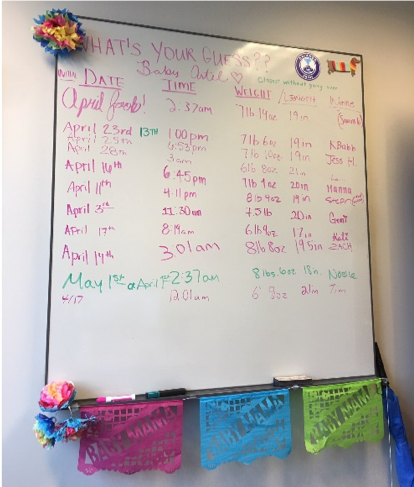 WHAT'S YOUR GUESS??
Baby Ortel ♡
Closest without going over
DATE TIME WEIGHT / LENGTH Name
April fools! 2:37am 7lb 14oz 19in
April 23rd 13TH 1:00pm 7lb 6oz 19in
April 25th 6:53pm 7lb 10oz 19in Jess H.
April 28th 3am 6lb 8oz 21in
April 16th 6:45pm 7lb 9oz 20in Hanna
April 11th 4:11pm 8lb 4oz 19in
April 3rd 11:30am 7.5lb 20in
April 17th 8:19am 6lb 9oz 17in Keli
April 14th 3:01am 8lb 8oz 19.5in ZACH
May 1st or April 1st 2:37am 8lbs 6oz 18in Nicole
4/17 12:01am 6' 9oz 21in Tim
BABY MAMA